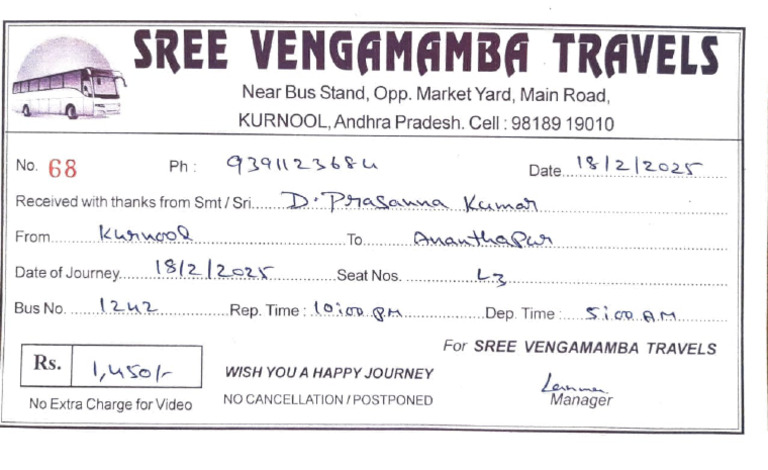 SREE VENGAMAMBA TRAVELS
Near Bus Stand, Opp. Market Yard, Main Road,
KURNOOL, Andhra Pradesh. Cell : 98189 19010
No. 68 Ph : 9391123684 Date 18/2/2025
Received with thanks from Smt / Sri. D. Prasanna Kumar
From Kurnool To Ananthapur
Date of Journey 18/2/2025 Seat Nos. L3
Bus No. 1242 Rep. Time : 10:00 PM Dep. Time : 5:00 A.M
For SREE VENGAMAMBA TRAVELS
Rs. 1,450/- WISH YOU A HAPPY JOURNEY
Manager
No Extra Charge for Video NO CANCELLATION / POSTPONED